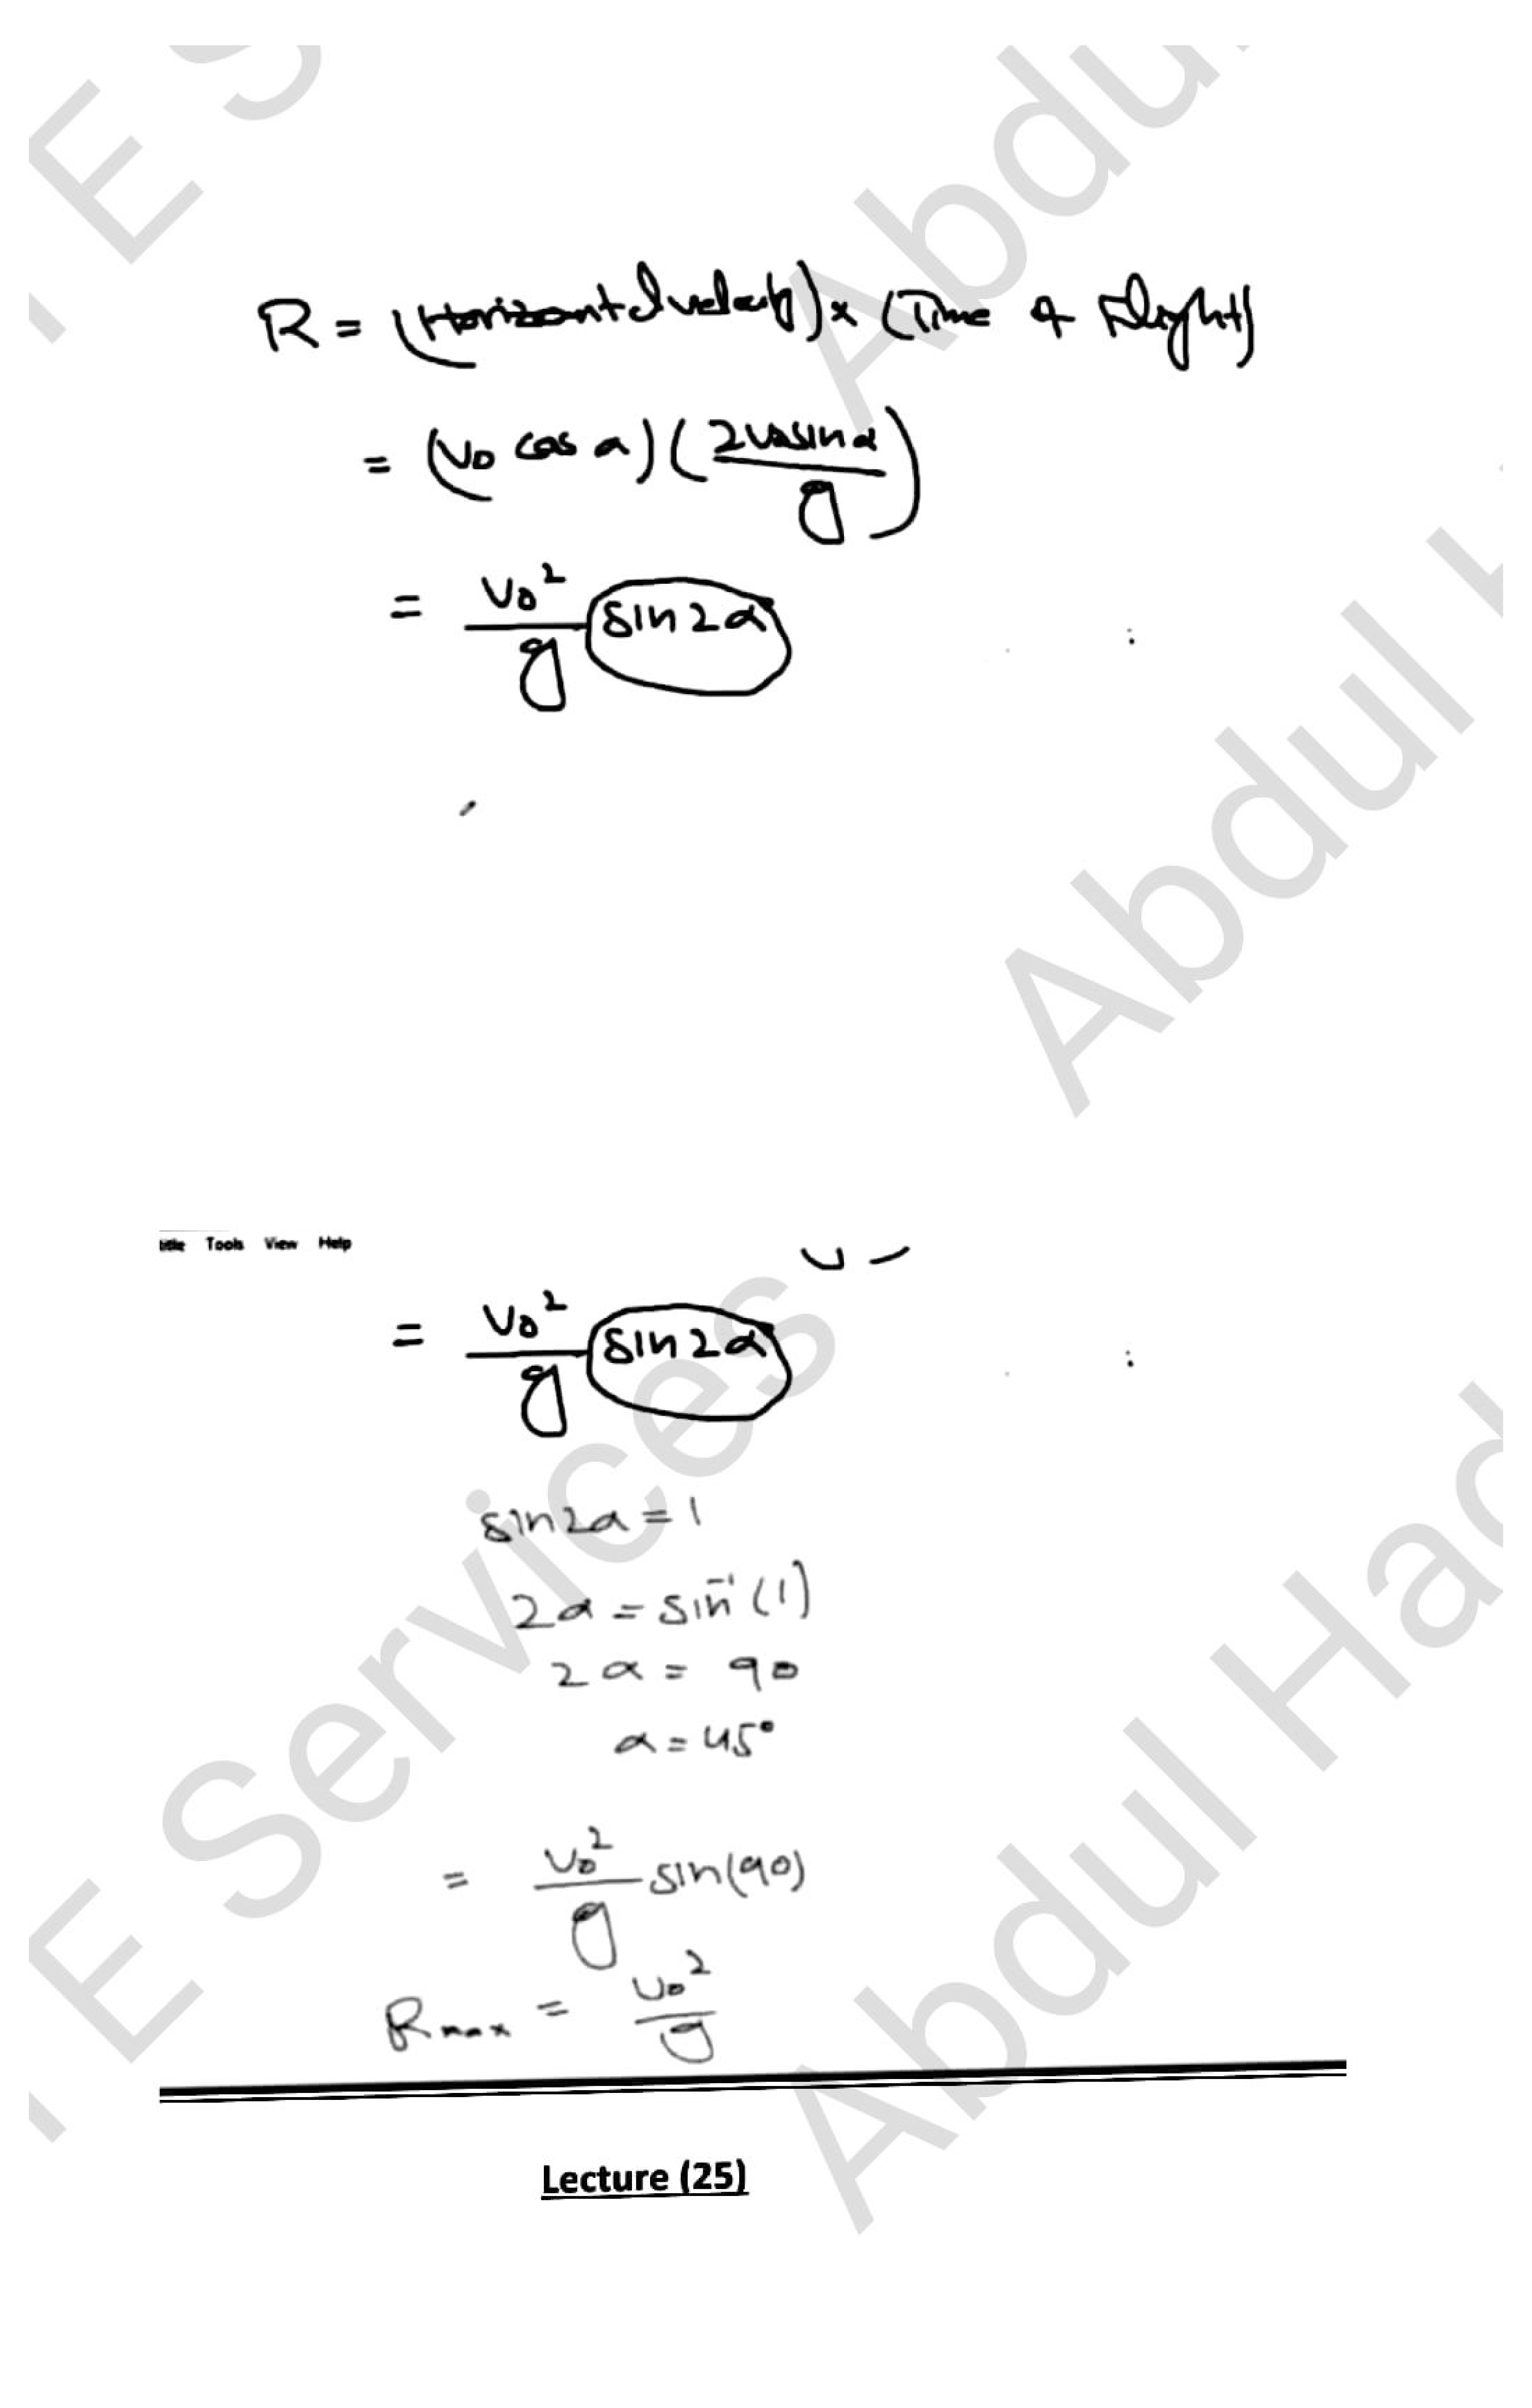 R = (Horizontal velocity) x (Time of Flight)
= (v₀ cos α) (2v₀ sin α / g)
= v₀² / g sin 2α
Title Tools View Help
= v₀² / g sin 2α
sin 2α = 1
2α = sin⁻¹ (1)
2α = 90
α = 45°
= v₀² / g sin(90)
Rmax = v₀² / g
Lecture (25)
E Services
Abdul Had
Abdul